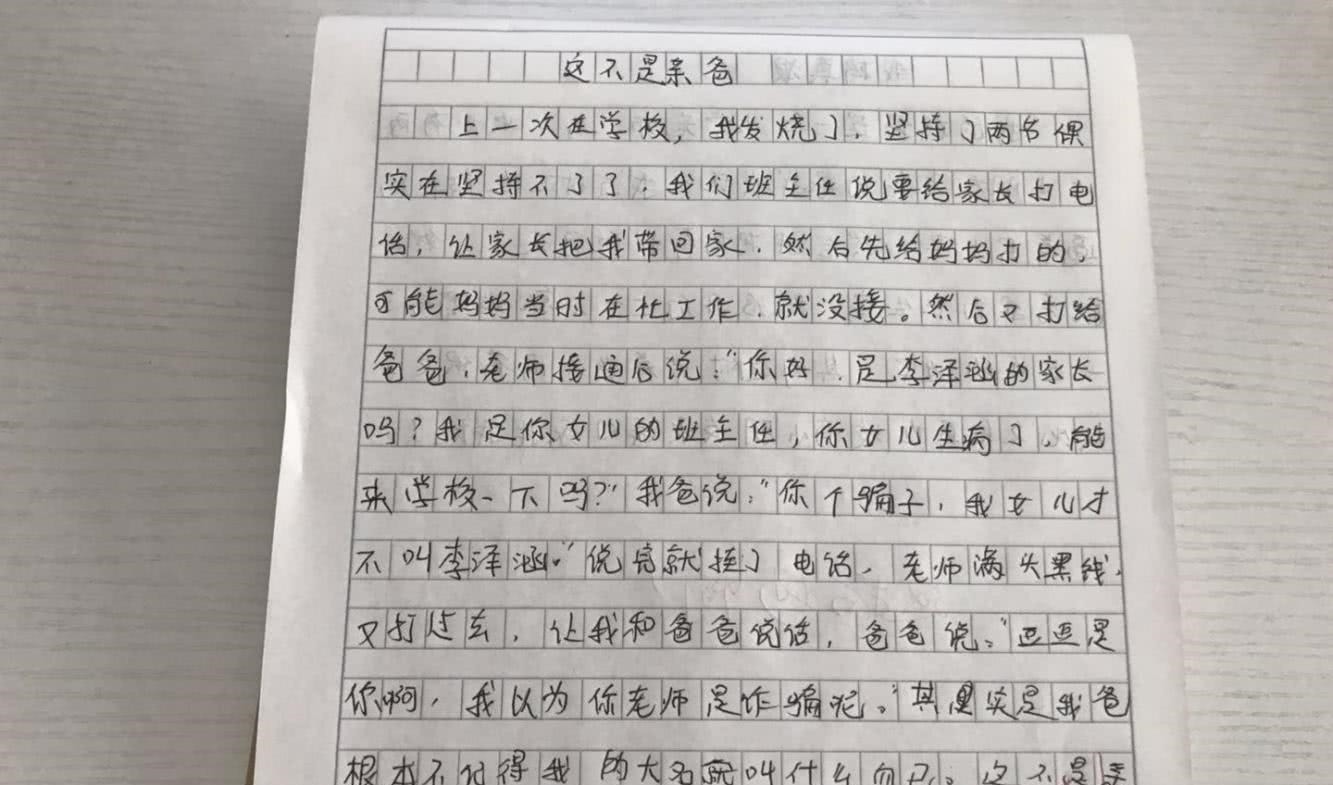 这不是亲爸
上一次在学校，我发烧了，坚持了两节课
实在坚持不了了，我们班主任说要给家长打电
话，让家长把我带回家，然后先给妈妈打的，
可能妈妈当时在忙工作，就没接。然后又打给
爸爸，老师接通后说：“你好，是李泽涵的家长
吗？我是你女儿的班主任，你女儿生病了，能
来学校一下吗？”我爸说：“你个骗子，我女儿才
不叫李泽涵。”说完就挂了电话，老师满头黑线，
又打过去，让我和爸爸说话，爸爸说：“豆豆是
你啊，我以为你老师是诈骗呢。”其实是我爸
根本不记得我的大名叫什么而已。这不是亲